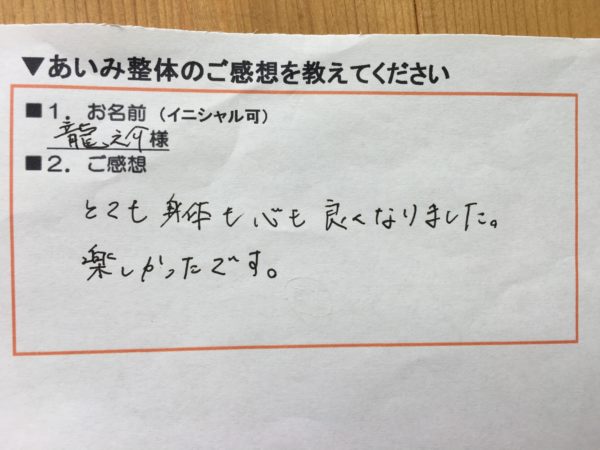 ▼あいみ整体のご感想を教えてください
■１．お名前（イニシャル可）
龍之介様
■２．ご感想
とても身体も心も良くなりました。
楽しかったです。